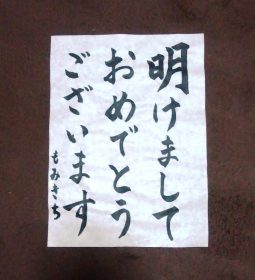 明けまして
おめでとう
ございます
もみきち